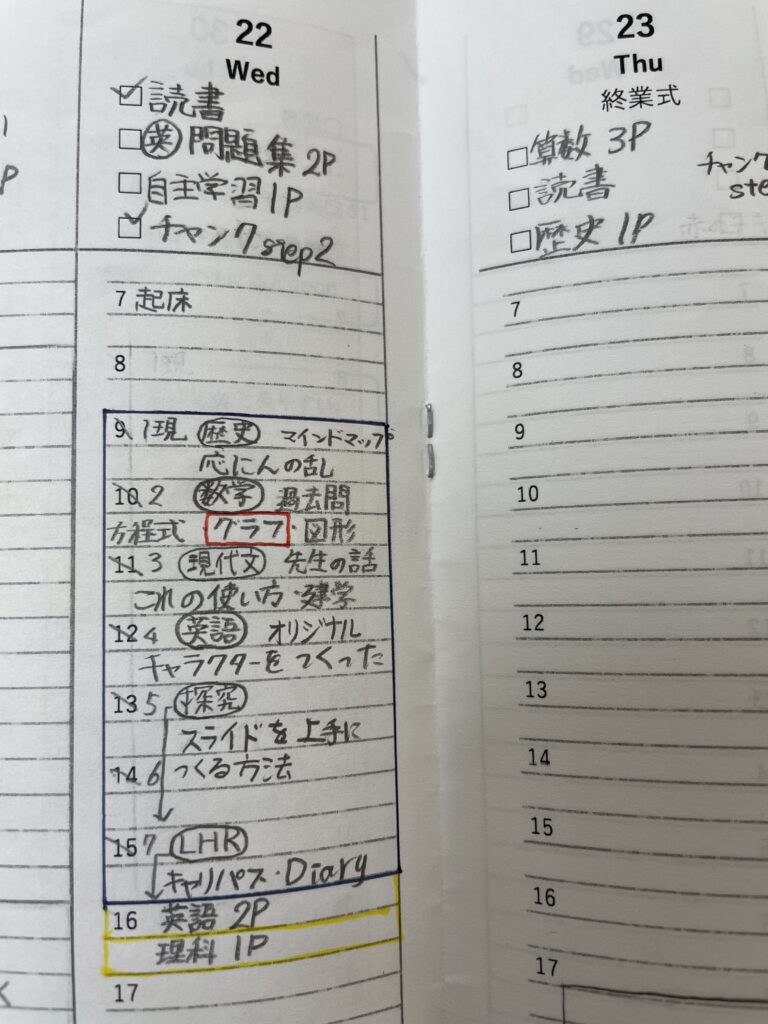 22
Wed
読書
英 問題集 2P
自主学習 1P
チャンク step2
7 起床
8
9 1限 歴史 マインドマップ
応にんの乱
10 2 数学 過去問
方程式・グラフ・図形
11 3 現代文 先生の話
これの使い方・建学
12 4 英語 オリジナル
キャラクターをつくった
13 5 探究
スライドを上手に
14 6 つくる方法
15 7 LHR
キャリパス・Diary
16 英語 2P
理科 1P
17
23
Thu
終業式
算数 3P
読書
歴史 1P
チャンク
ste
7
8
9
10
11
12
13
14
15
16
17